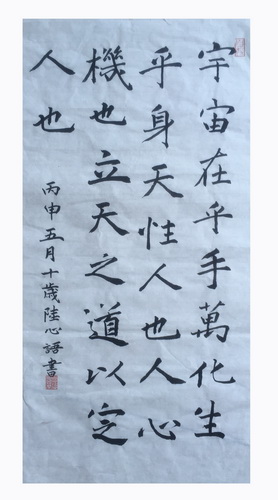 宇宙在乎手萬化生
乎身天性人也人心
機也立天之道以定
人也
丙申五月十歲陸心語書